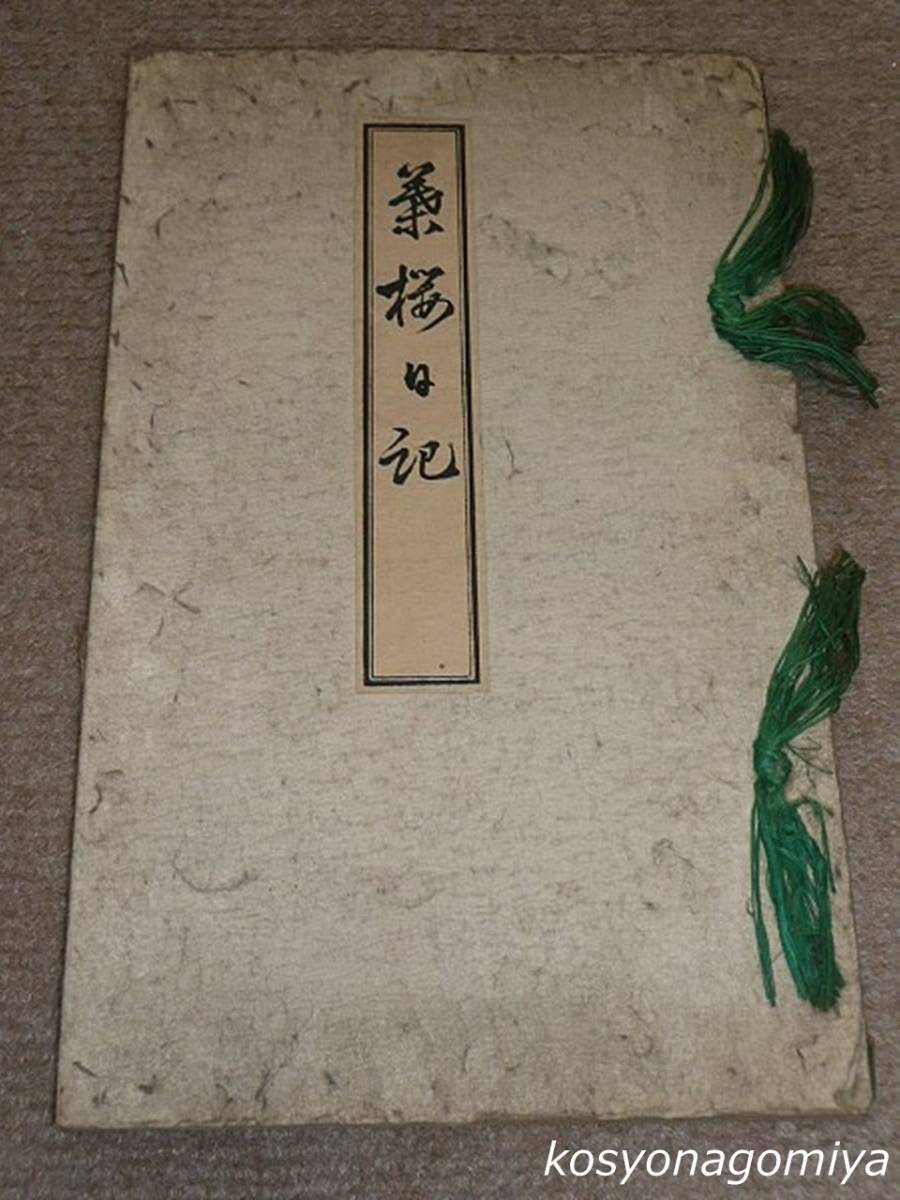 葉桜日記
kosyonagomiya